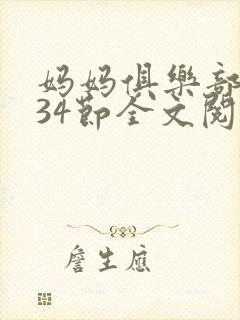 妈妈俱樂部
34節全文閱
詹生應